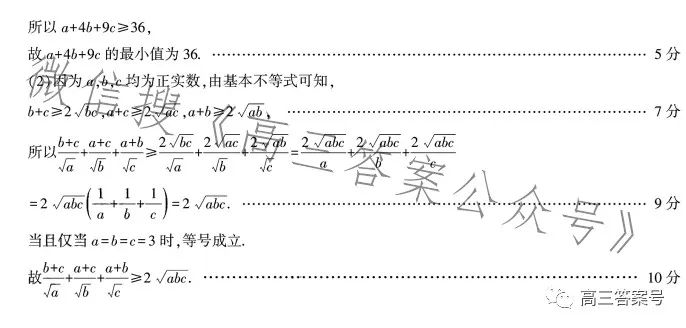 所以 a+4b+9c≥36,
故 a+4b+9c 的最小值为 36. ……………………………… 5 分
(2)因为 a,b,c 均为正实数,由基本不等式可知,
b+c≥2√bc,a+c≥2√ac,a+b≥2√ab, ……………………………… 7 分
所以 (b+c)/√a+(a+c)/√b+(a+b)/√c≥2√bc/√a+2√ac/√b+2√ab/√c=2√abc/a+2√abc/b+2√abc/c
=2√abc(1/a+1/b+1/c)=2√abc. ……………………………… 9 分
当且仅当 a=b=c=3 时,等号成立.
故(b+c)/√a+(a+c)/√b+(a+b)/√c≥2√abc. ……………………………… 10 分
微信搜《高三答案公众号》
高三答案号